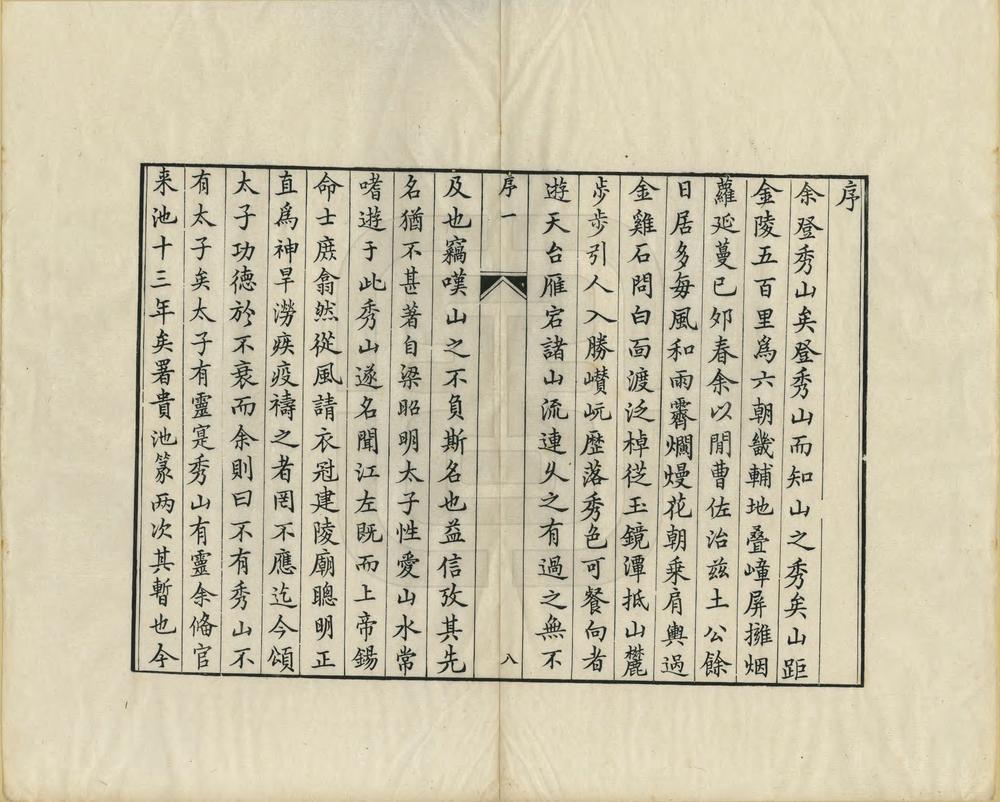 序
余登秀山矣登秀山而知山之秀矣山距
金陵五百里爲六朝畿輔地叠嶂屏擁烟
蘿延蔓已夘春余以閒曹佐治兹土公餘
日居多每風和雨霽爛熳花朝乘肩輿過
金雞石問白面渡泛棹從玉鏡潭抵山麓
步步引人入勝巑岏歷落秀色可餐向者
遊天台雁宕諸山流連乆之有過之無不
序一
八
及也竊嘆山之不負斯名也益信攷其先
名猶不甚著自梁昭明太子性愛山水常
嗜遊于此秀山遂名聞江左既而上帝錫
命士庶翕然從風請衣冠建陵廟聰明正
直爲神旱澇疾疫禱之者罔不應迄今頌
太子功德於不衰而余則曰不有秀山不
有太子矣太子有靈寔秀山有靈余俻官
来池十三年矣署貴池篆两次其暫也今